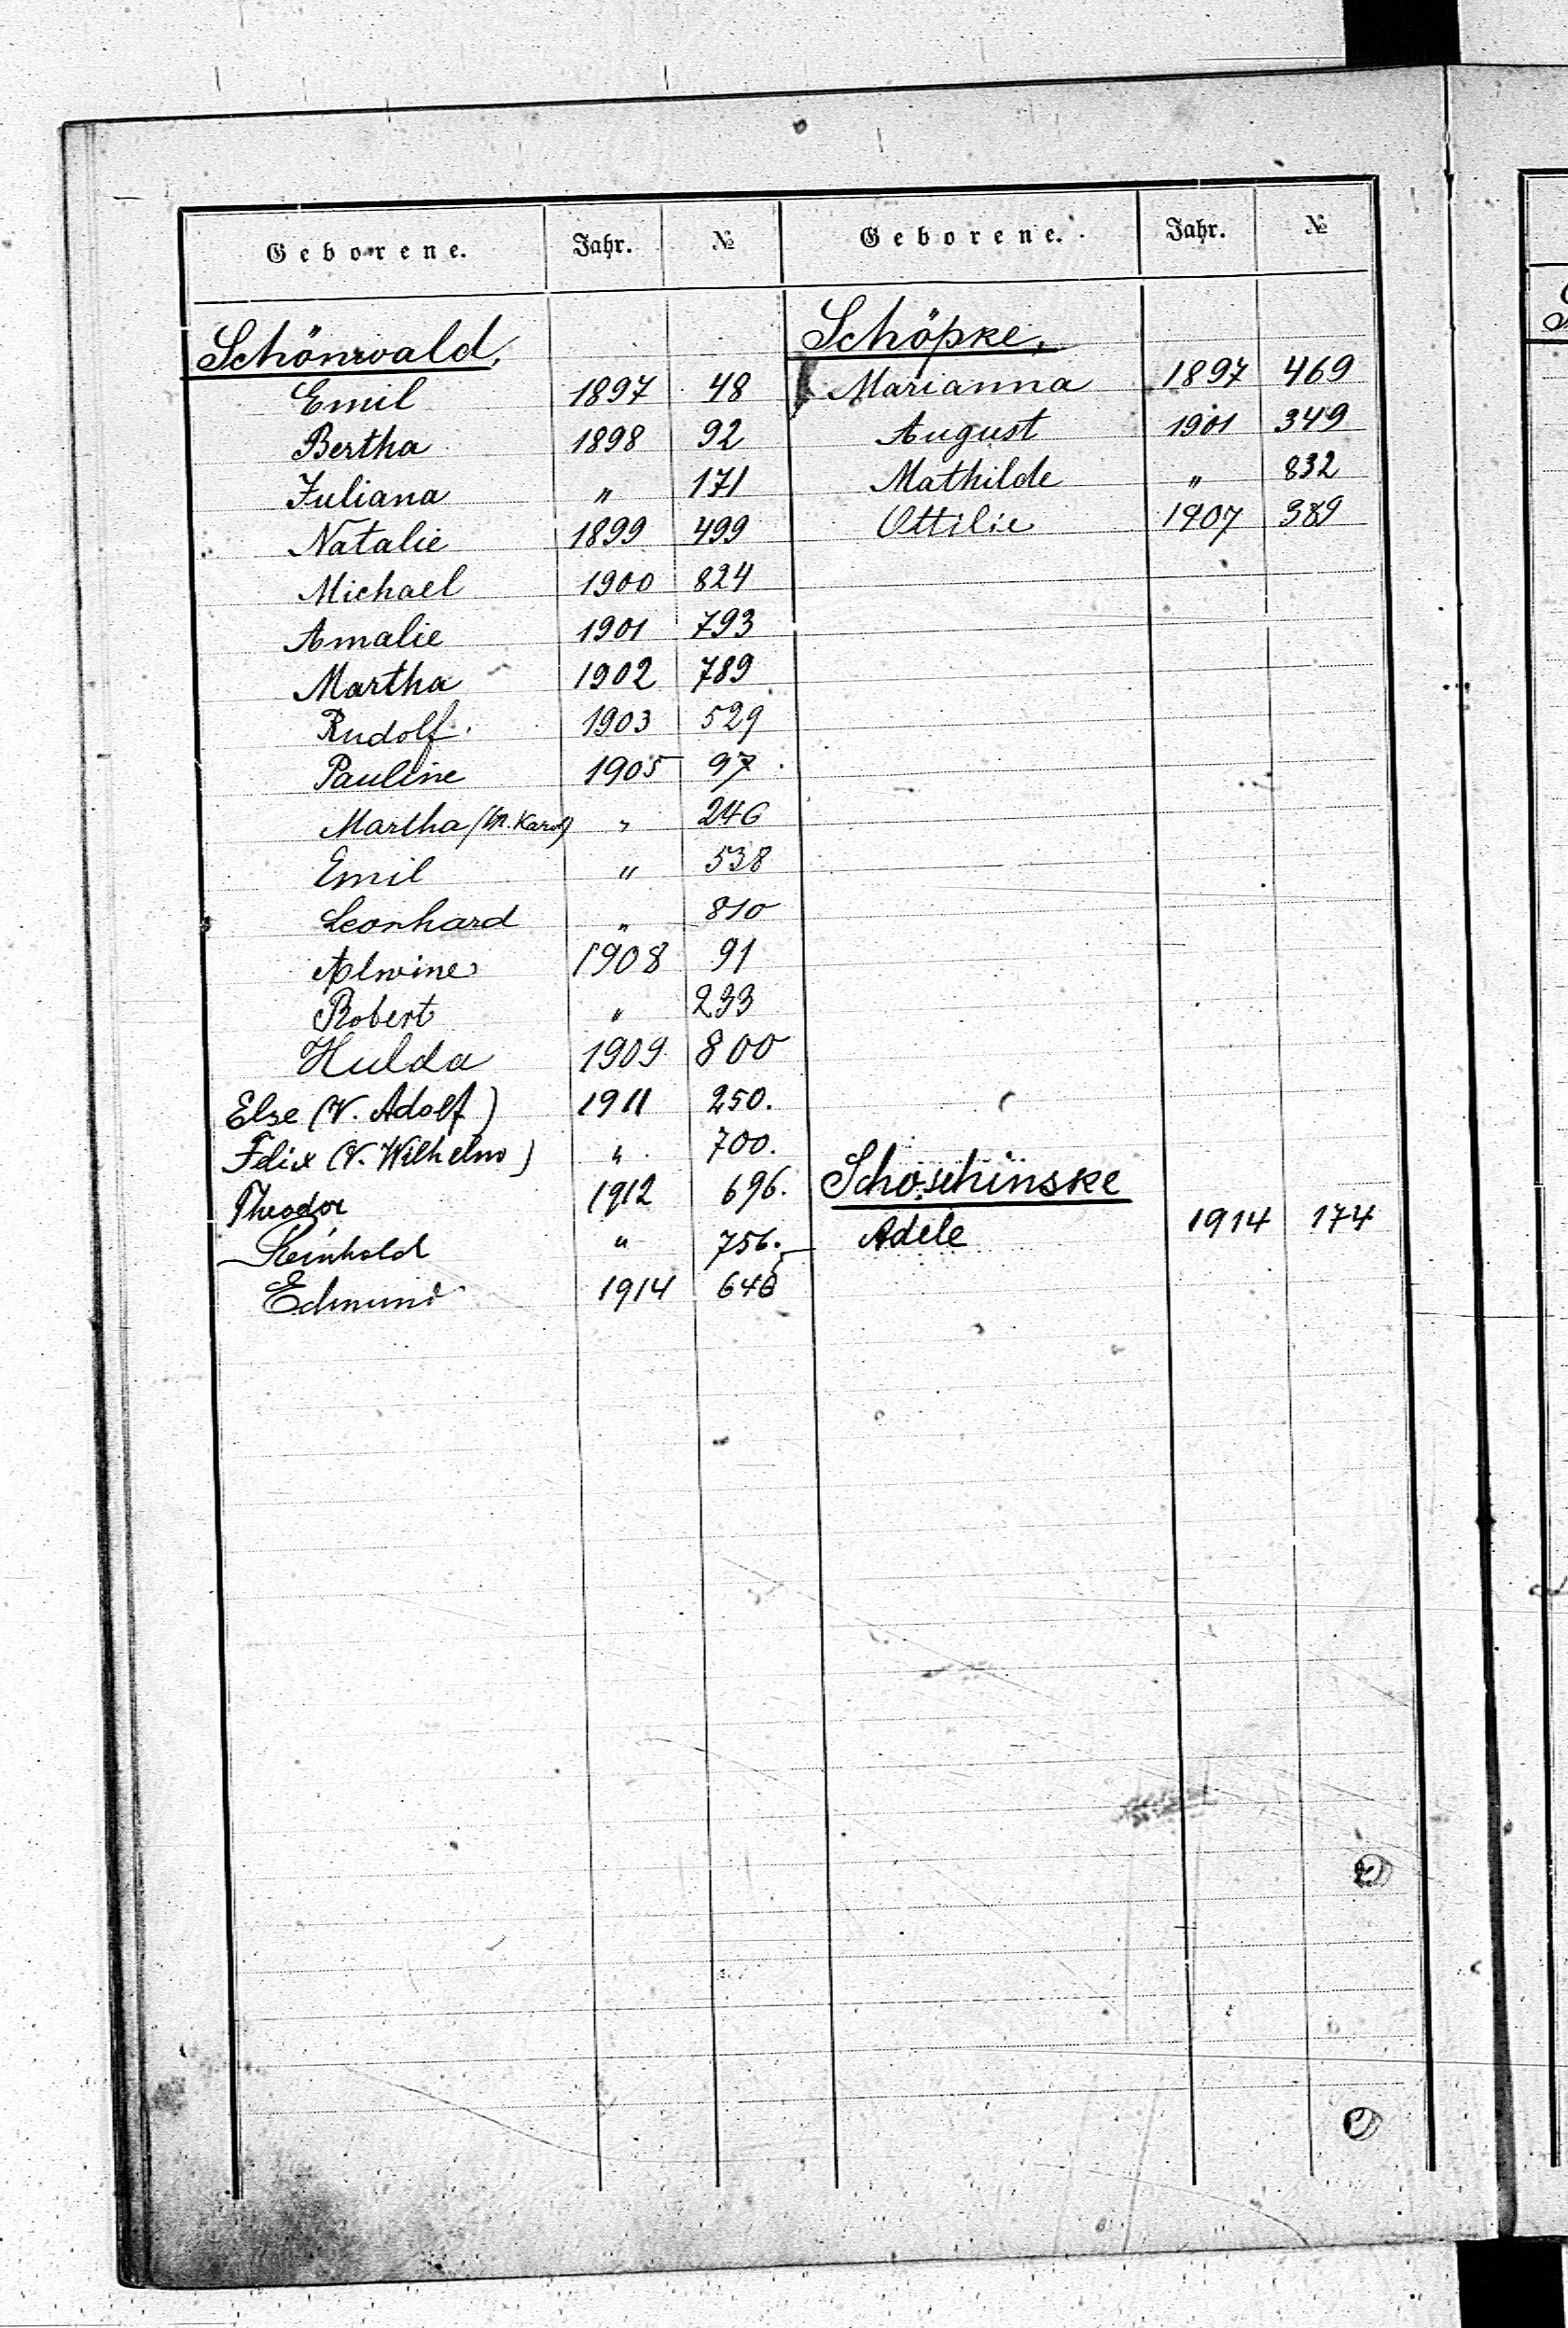 Geborene. Jahr. №
Schönwald,
Emil 1897 48
Bertha 1898 92
Juliana " 171
Natalie 1899 499
Michael 1900 824
Amalie 1901 793
Martha 1902 789
Rudolf. 1903 529
Pauline 1905 97
Martha " 246
Emil " 538
Leonhard " 810
Alwine 1908 91
Robert " 233
Hulda 1909 800
Else (V. Adolf) 1911 250.
Felix (V. Wilhelm) " 700.
Theodor 1912 696.
Reinhold " 756.
Edmund 1914
Geborene. Jahr. №
Schöpke,
Marianna 1897 469
August 1901 349
Mathilde " 832
Ottilie 1907 389
Schoschinske
Adele 1914 174